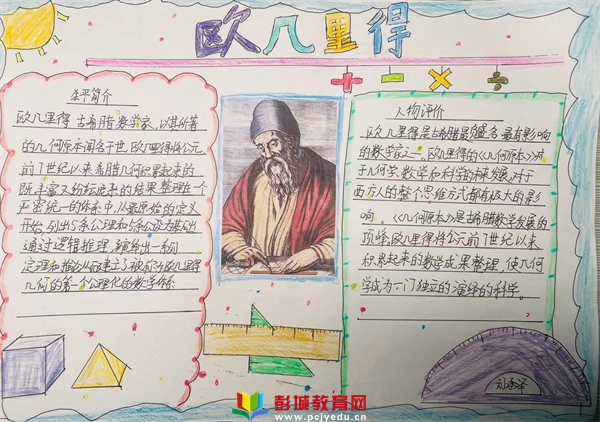 欧几里得
+ - × ÷
生平简介
欧几里得 古希腊数学家,以其所著
的几何原本闻名于世,欧几里得将公元
前7世纪以来希腊几何积累起来的
既丰富又纷纭庞杂的结果整理在一个
严密统一的体系中,从最原始的定义
开始,列出5条公理和5条公设为基础
通过逻辑推理,演绎出一系列
定理和推论从而建立了被称为欧几里得
几何的第一个公理化的数学体系
人物评价
欧几里得是古希腊最负盛名、最有影响
的数学家之一,欧几里得的《几何原本》对
于几何学、数学和科学的未来发展,对于
西方人的整个思维方式都有极大的影
响。《几何原本》是古希腊数学发展的
顶峰,欧几里得将公元前7世纪以来
积累起来的数学成果整理,使几何
学成为一门独立的、演绎的科学。
彭城教育网
www.pcjyedu.cn